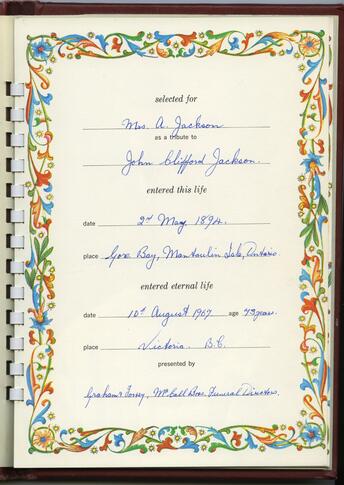 selected for
Mrs. A. Jackson
as a tribute to
John Clifford Jackson.
entered this life
date 2nd May 1894.
place Gore Bay, Manitoulin Isle, Ontario
entered eternal life
date 10th August 1967 age 73 years.
place Victoria. B.C.
presented by
McCall Bros. Funeral Directors.